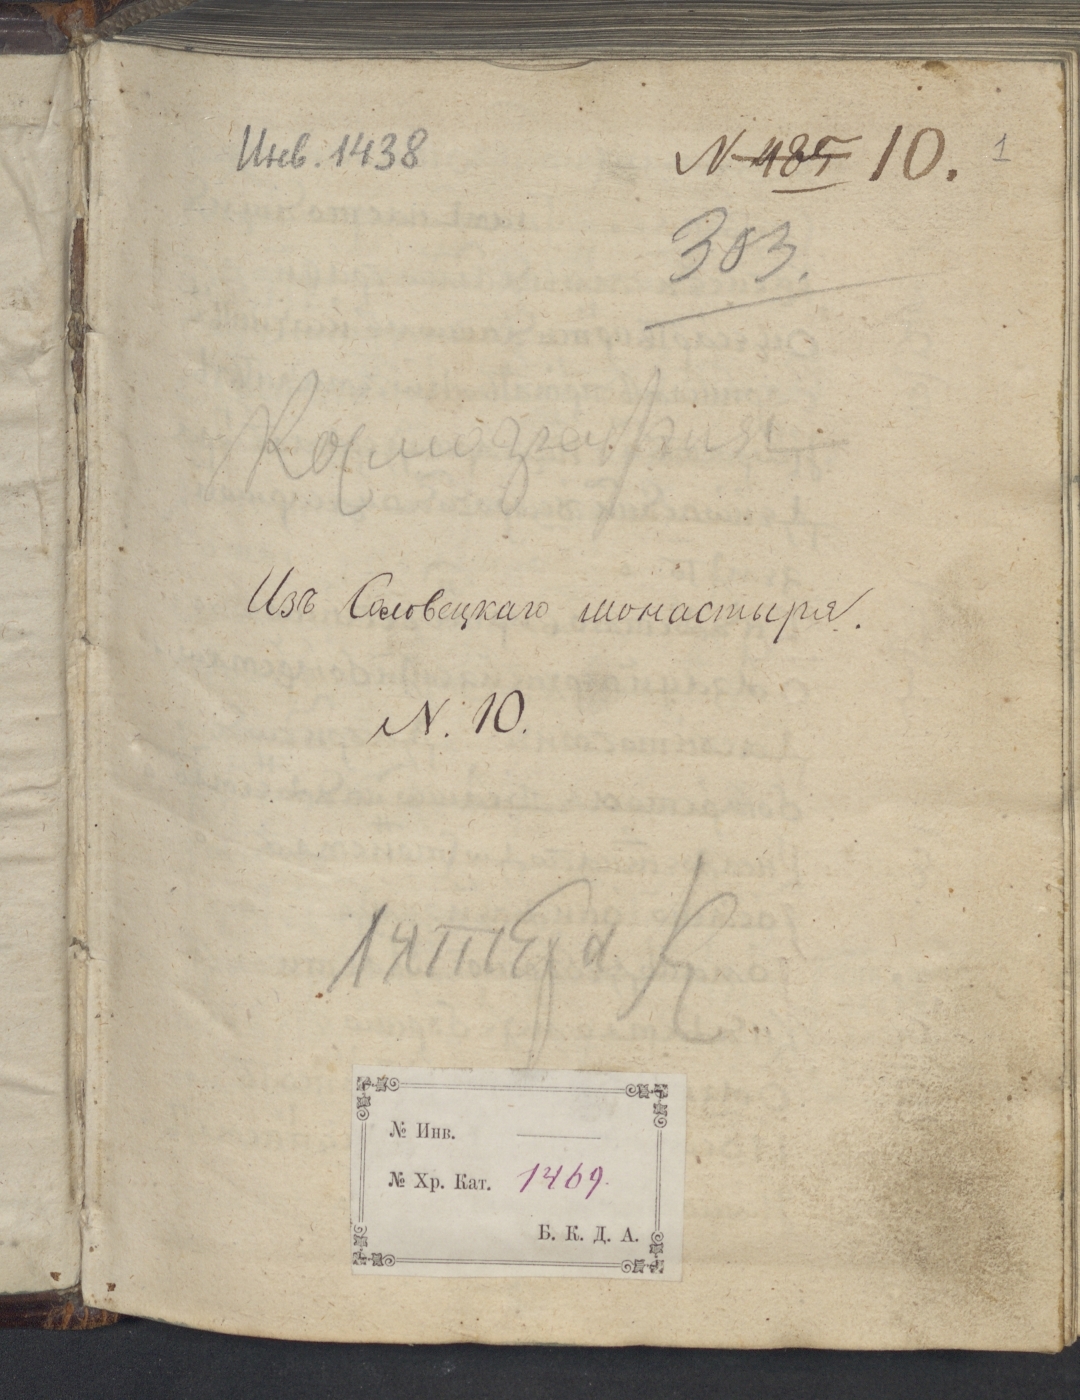 Инв. 1438
N 485 10. 1
303.
Космография
Изъ Соловецкаго монастыря.
N. 10.
№ Инв.
№ Хр. Кат. 1469.
Б. К. Д. А.